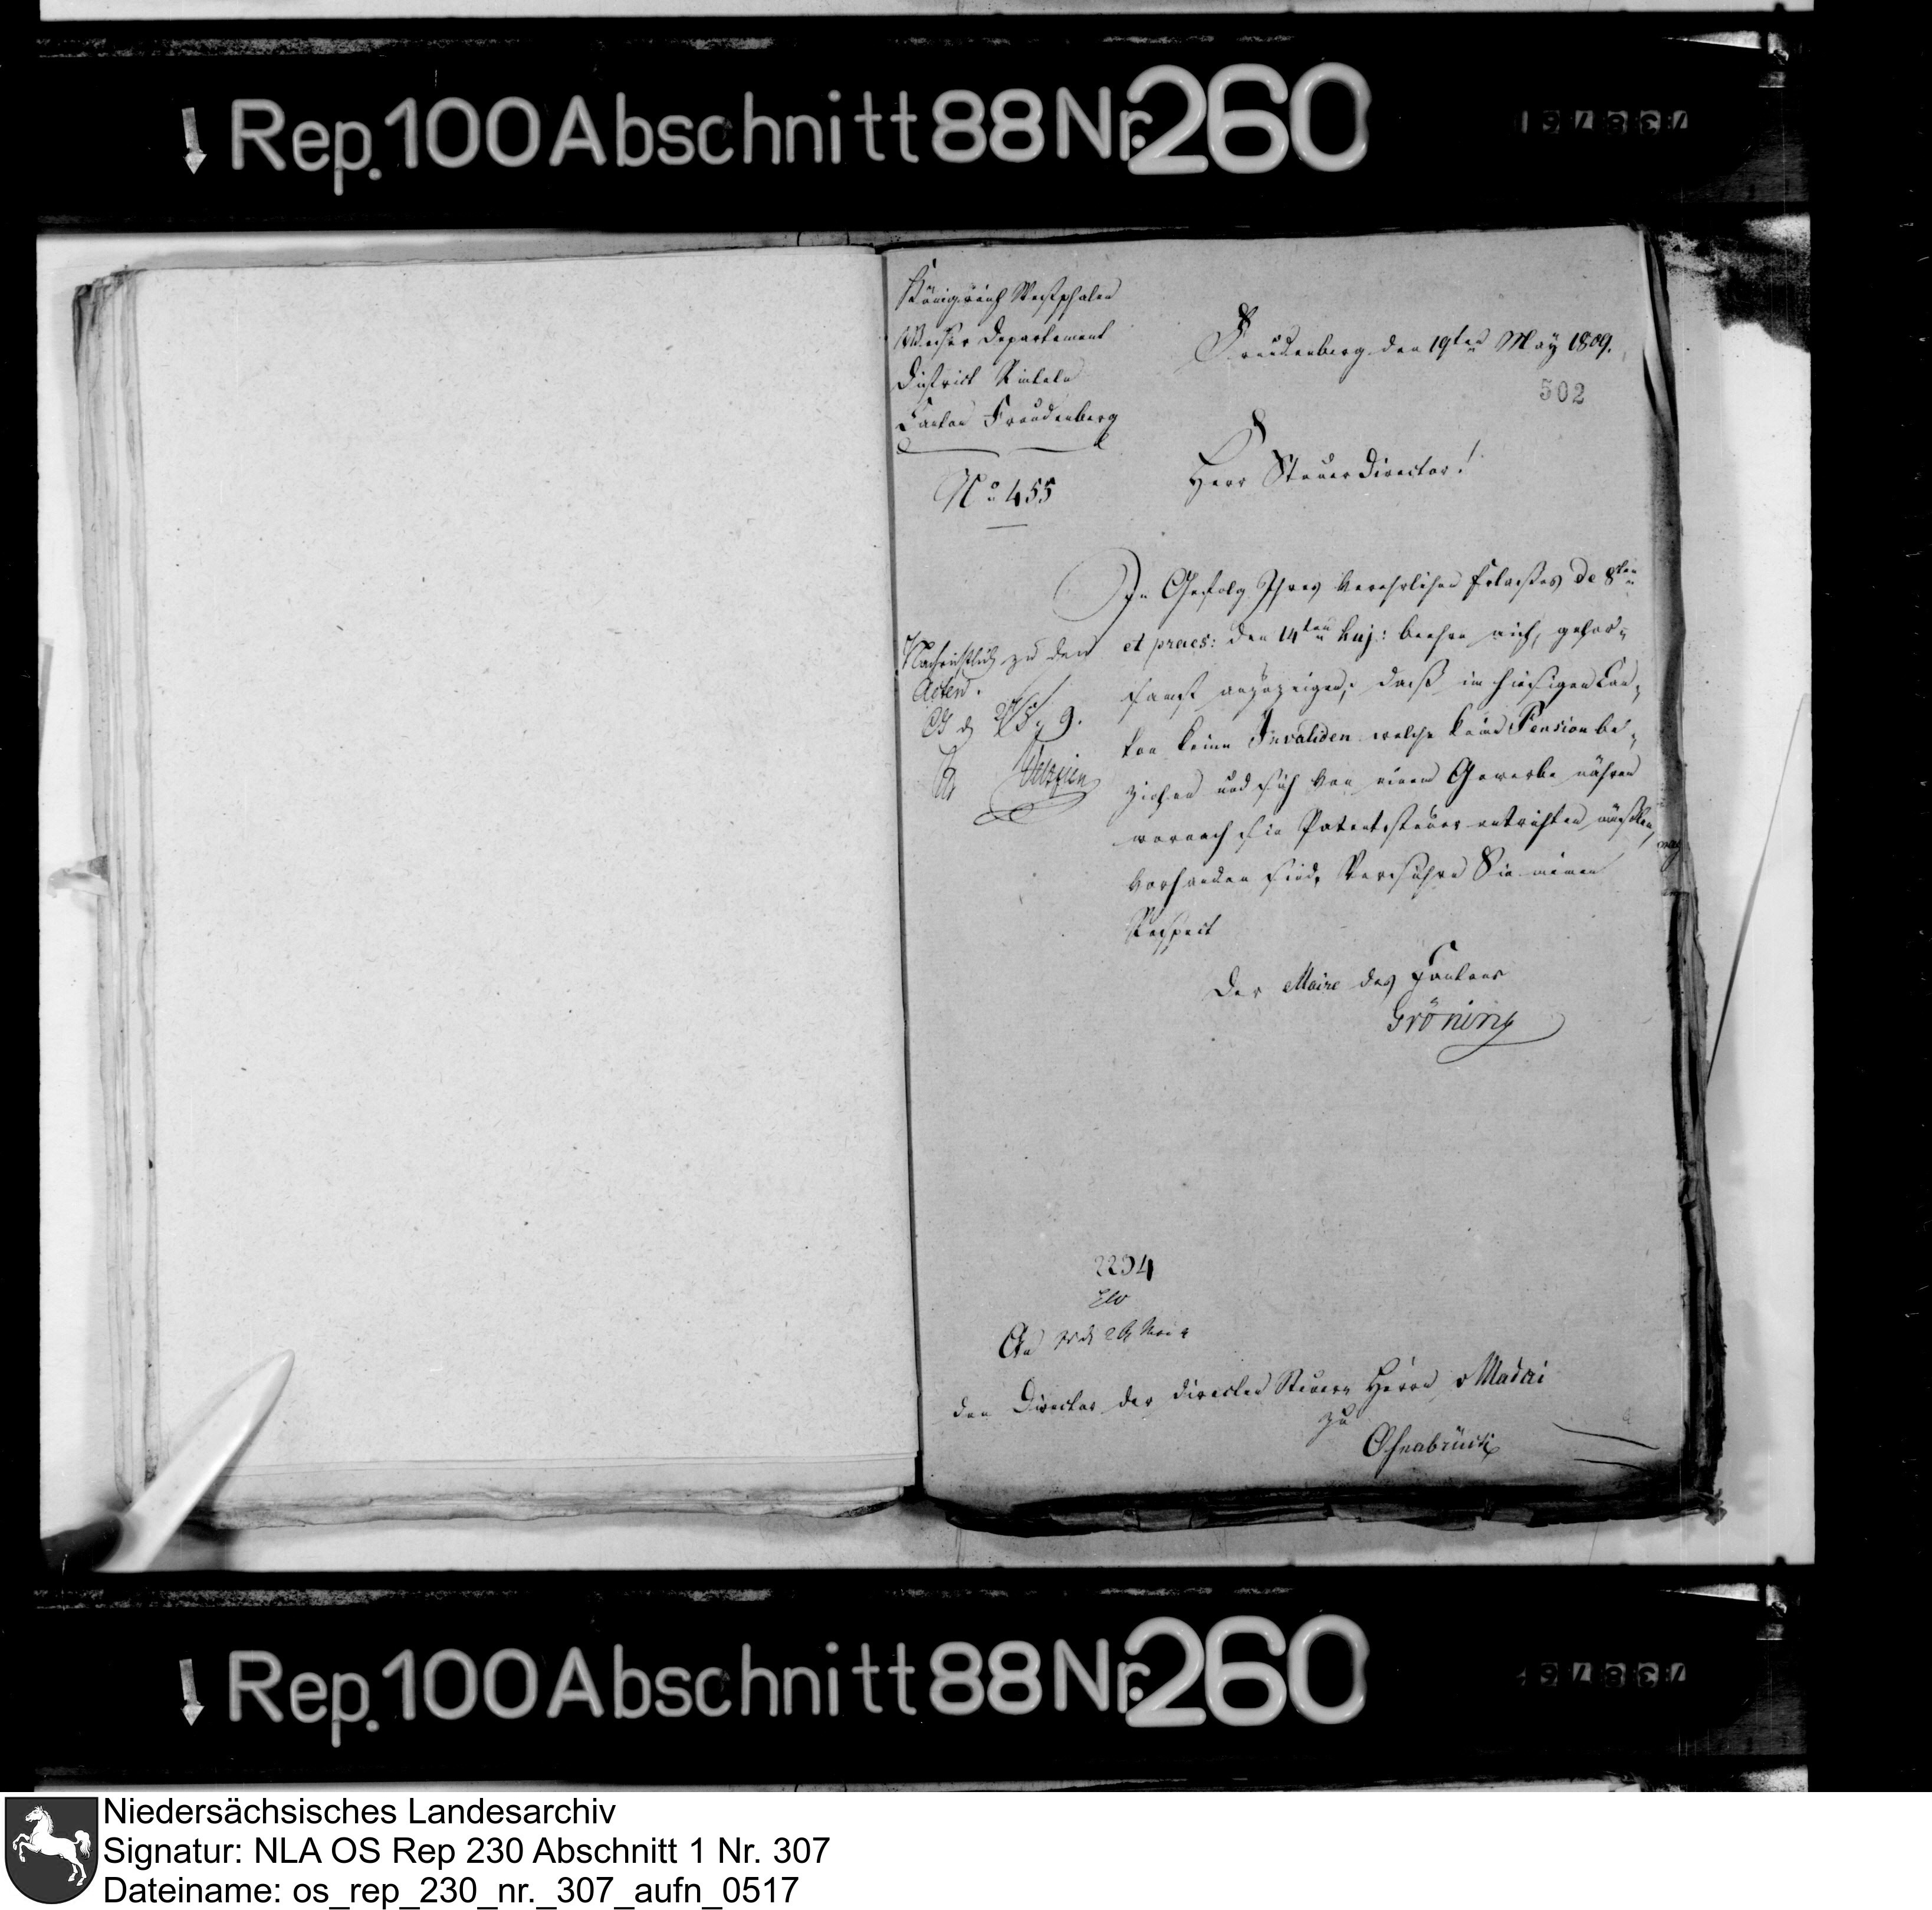 Rep. 100 Abschnitt 88 Nr. 260
Königreich Westphalen
Weser Departement
District Rinteln
Canton Freudenberg
No 455
Freudenberg den 19ten May 1809.
502
Herr Steuer Director!
In Gefolg Ihres verehrlichen Erlaßes de 8ten
et praes: den 14ten huj: beehre mich, gehor-
samst anzuzeigen, daß im hiesigen Can-
ton keine Invaliden welche keine Pension be-
ziehen und sich von einem Gewerbe nähren
wornach sie Patentsteuer entrichten müßten,
vorhanden sind. Versichern Sie meinen
Respect
Der Maire des Cantons
Gröning
Nachrichtlich zu den
Acten.
2234
An
den Director der directen Steuern Herrn v Madai
zu
Osnabrück
Rep. 100 Abschnitt 88 Nr. 260
Niedersächsisches Landesarchiv
Signatur: NLA OS Rep 230 Abschnitt 1 Nr. 307
Dateiname: os_rep_230_nr._307_aufn_0517